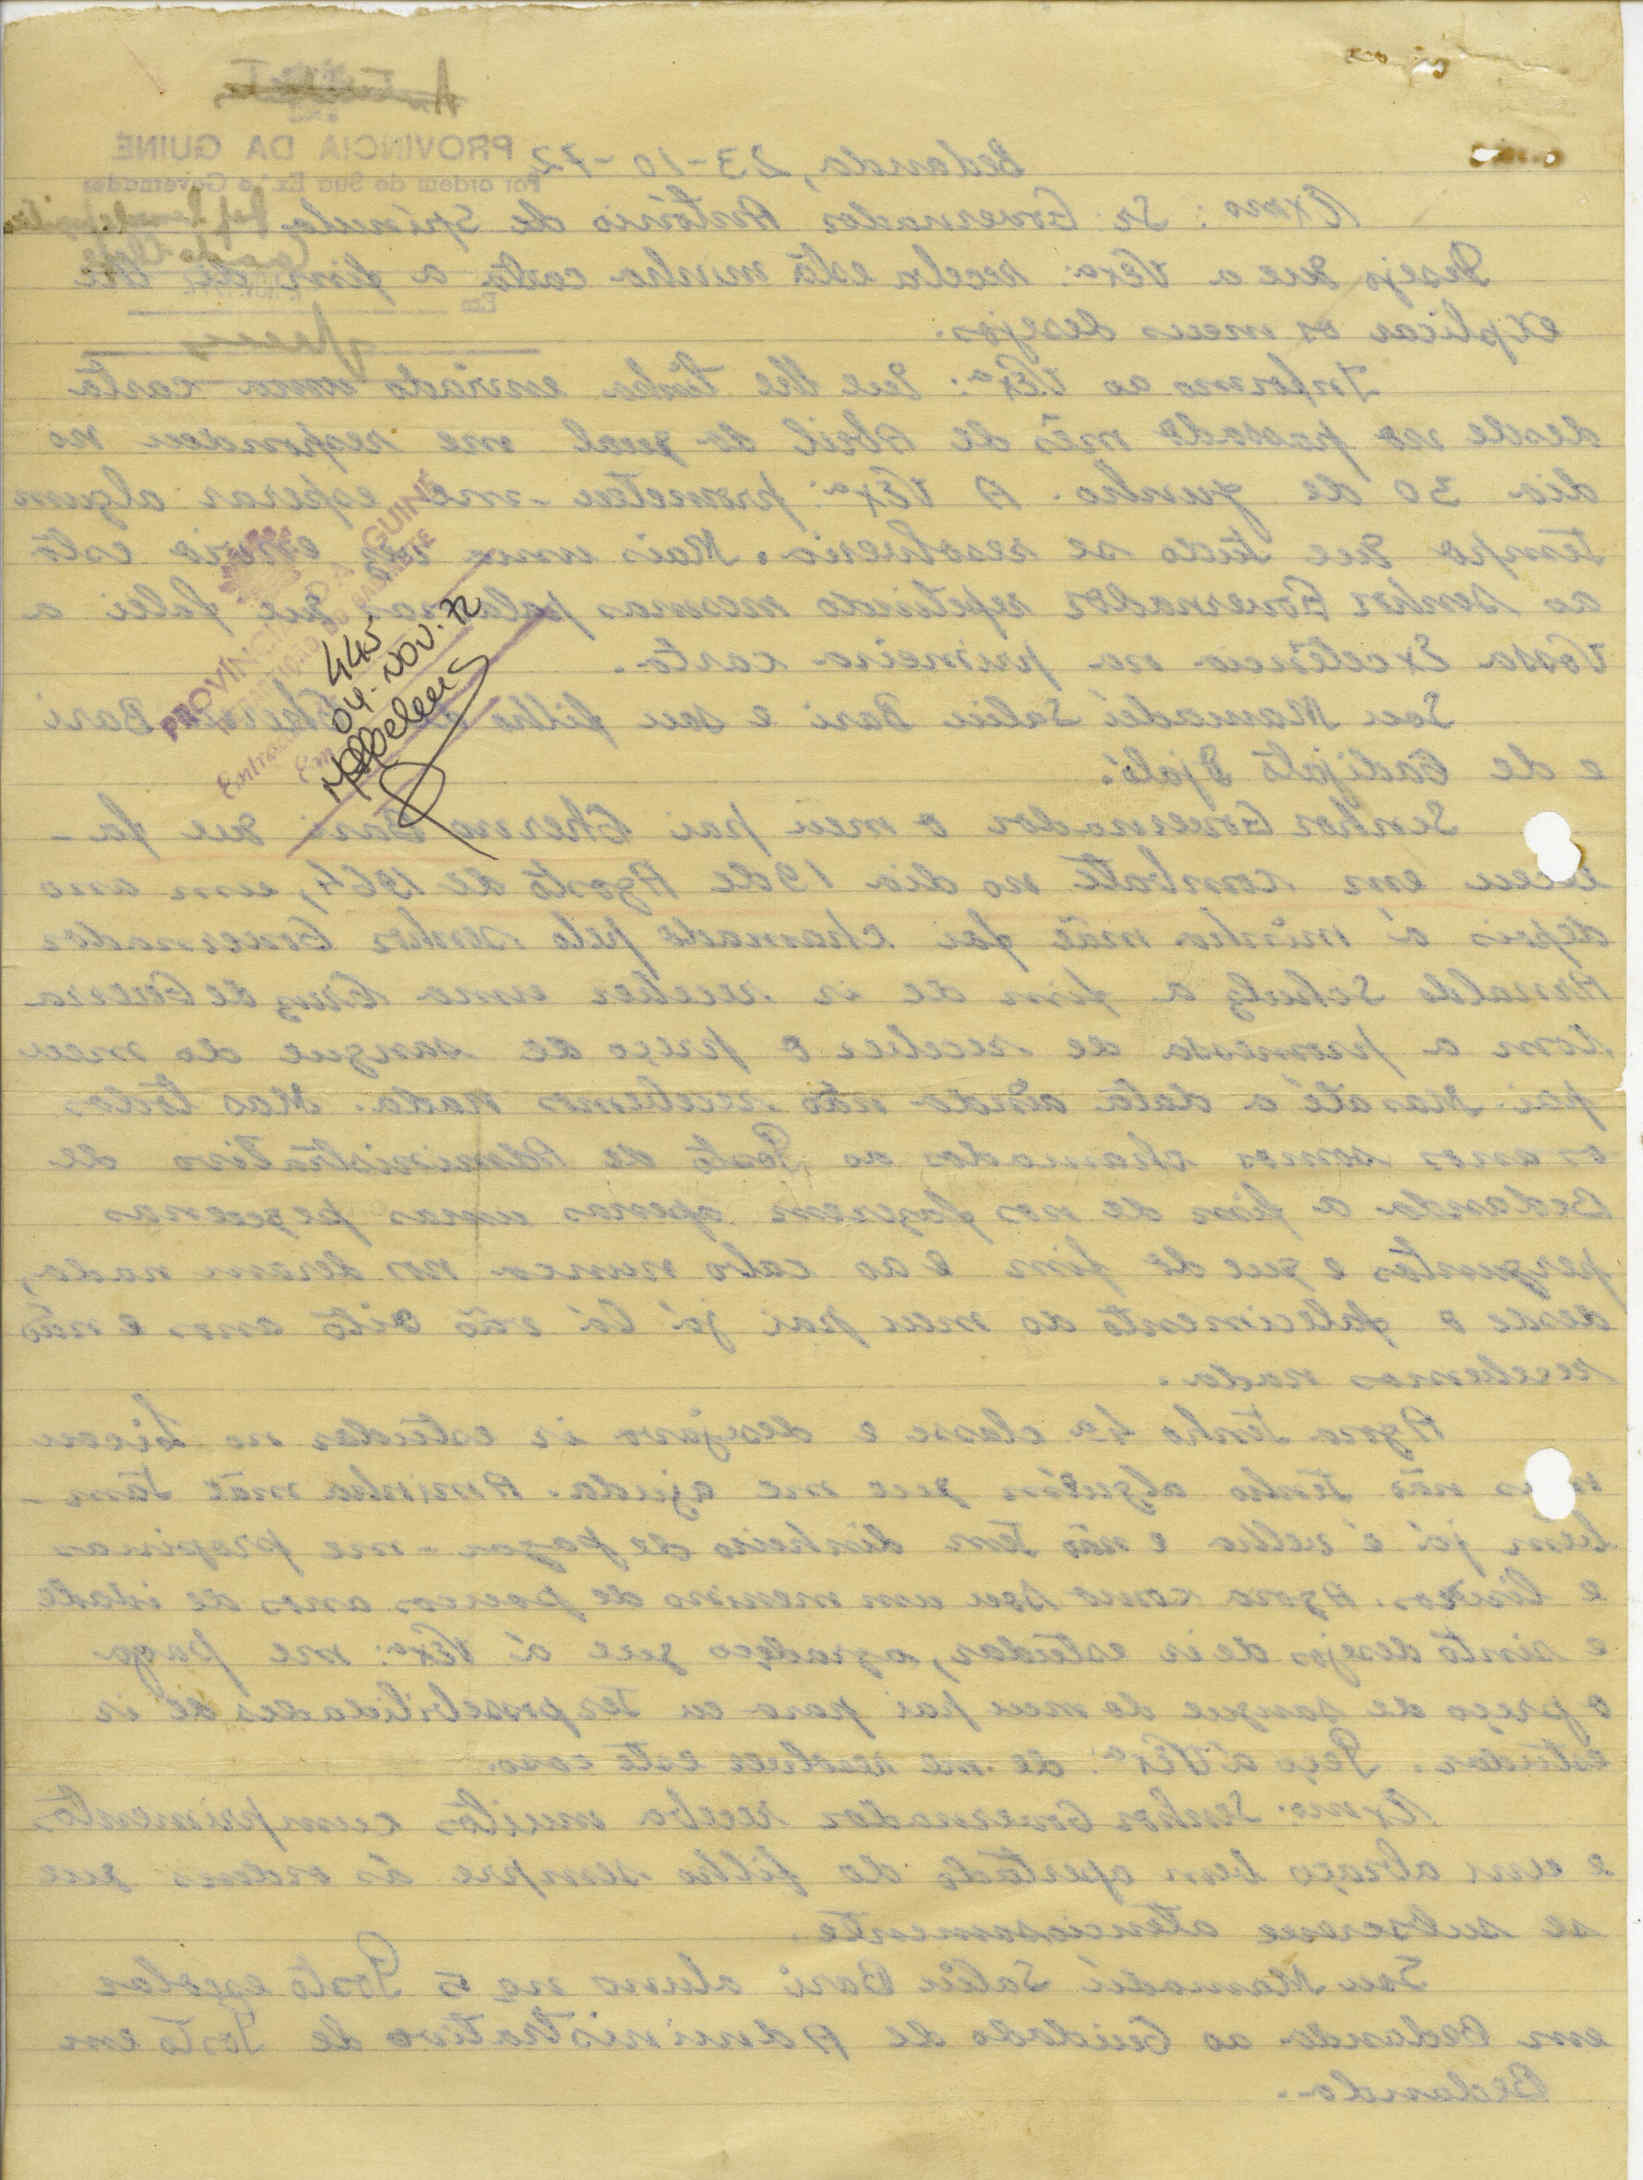 A
PROVINCIA DA GUINÉ
Por ordem de Sua Exª o Governador
Bedanda, 23-10-72
Exmo: Sr. Governador António de Spínola
Desejo que a VExª: receba está minha carta a fim de lhe
Em
explicar os meus desejos.
Informo ao VExª: que lhe tinha enviado uma carta
desde no passado mês de Abril do qual me respondeu no
dia 30 de Junho. A VExª: prometeu-me esperar algum
tempo que tudo se resolveria. Mais uma vez envio está
ao senhor Governador repetindo mesmas palavras que falei a
Vossa Excelência na primeira carta.
PROVINCIA DA GUINÉ
GABINETE
Entrada
Em
445
04-NOV.72
Sou Mamadú Saliu Bari e sou filho de Cherno Bari
e de Cadijató Djaló.
Senhor Governador o meu pai Cherno Bari que fa-
leceu em combate no dia 19 de Agosto de 1964, um ano
depois á minha mãe foi chamado pelo senhor Governador
Arnaldo Schulz a fim de ir receber uma Cruz de Guerra
com a promessa de receber o preço de sangue do meu
pai. Mas até a data ainda não recebemos nada. Mas todos
os anos somos chamados ao Posto de Administrativo de
Bedanda a fim de nos fazerem apenas umas pequenas
perguntas e que do fim e ao cabo nunca nos deram nada,
desde o falecimento do meu pai já lá vão oito anos e não
recebemos nada.
Agora tenho 4ª classe e desejava ir estudar no Liceu
mas não tenho alguém que me ajuda. A minha mãe tam-
bém já é velha e não tem dinheiro de pagar-me propinas
e livros. Agora como sou um menino de poucos anos de idade
e sinto desejos de ir estudar, agradeço que á VExª: me paga
o preço de sangue do meu pai para eu ter possebilidades de ir
estudar. Peço á VExª: de me resolver este caso.
Exmo: Senhor Governador receba muitos cumprimentos
e um abraço bem apertado do filho sempre ás ordens que
se subscreve atenciosamente.
Sou Mamadú Saliu Bari aluno nº 5 Posto escolar
em Bedanda ao Cuidado de Administrativo de Posto em
Bedanda.-